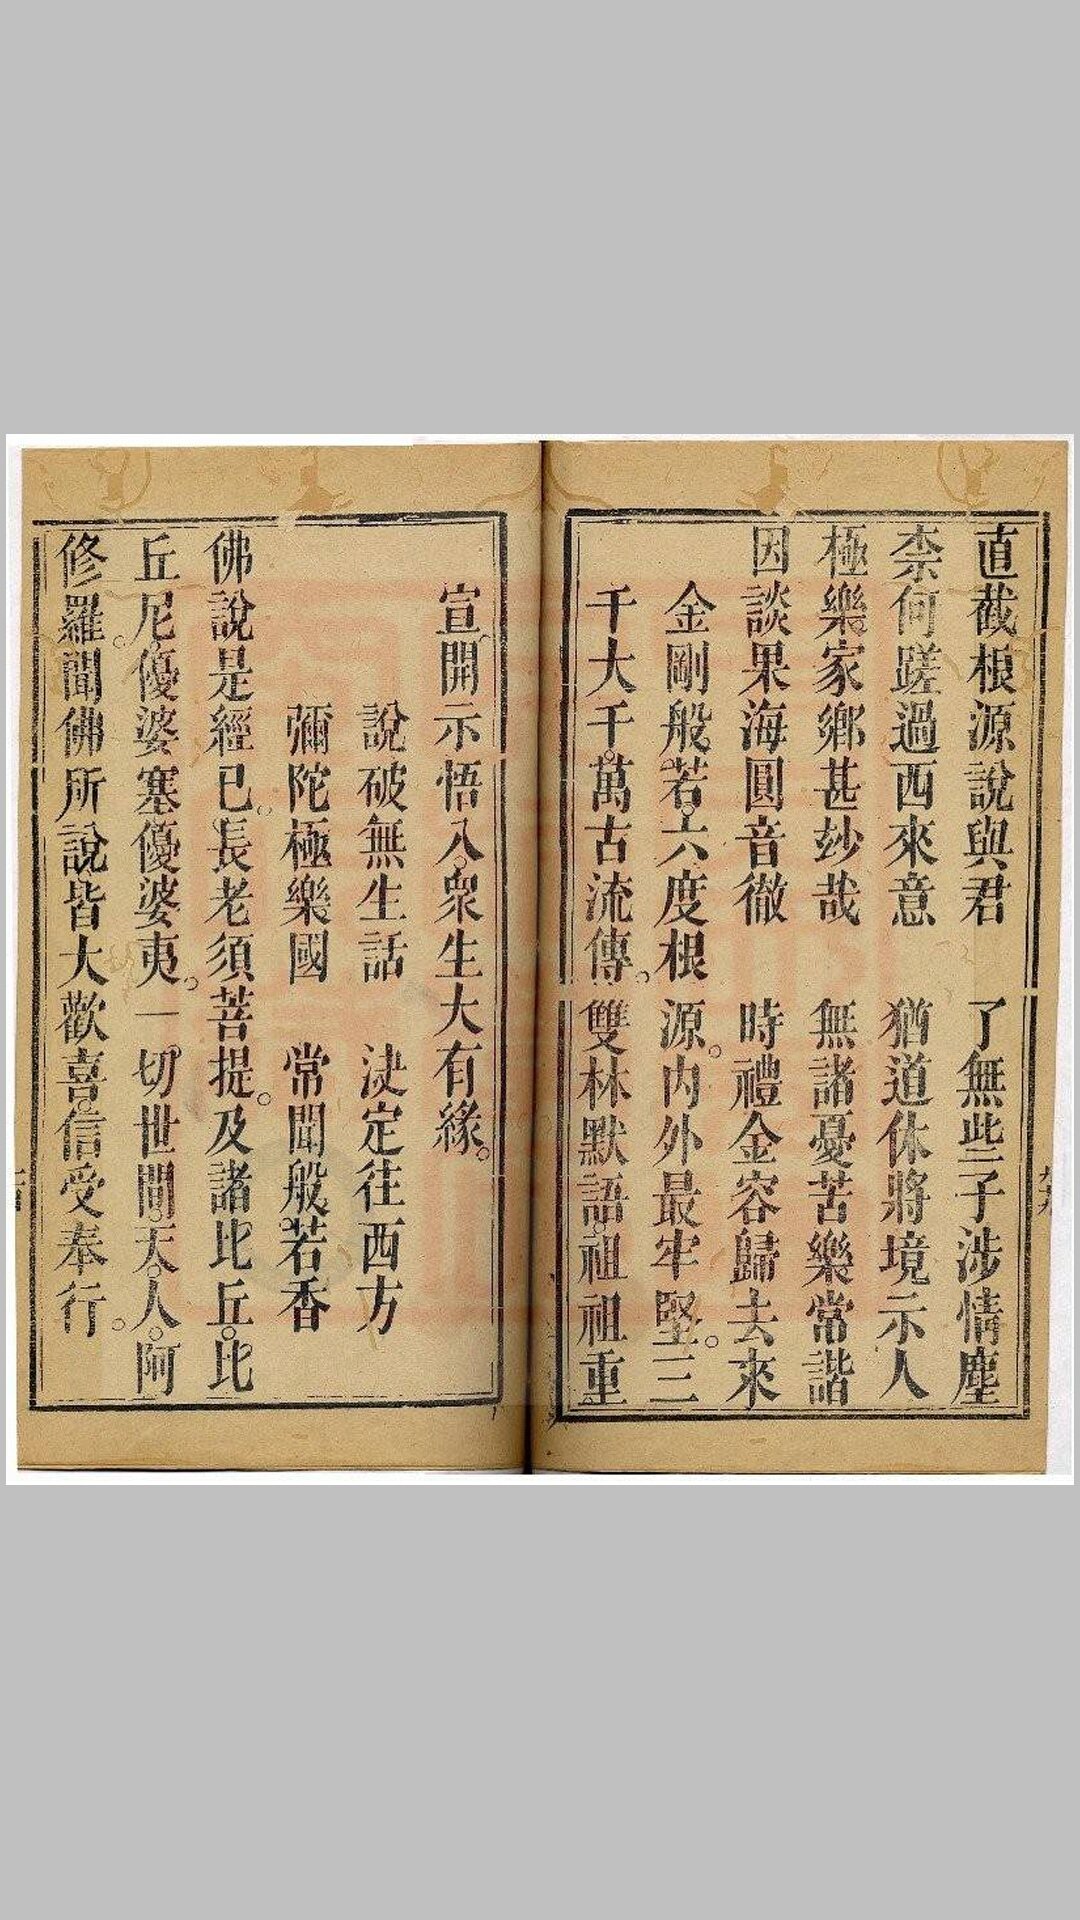 直截根源說與君　了無些子涉情塵
柰何蹉過西來意　猶道休將境示人
極樂家鄉甚玅哉　無諸憂苦樂常諧
因談果海圓音徹　時禮金容歸去來
金剛般若。六度根源。內外最牢堅。三
千大千。萬古流傳。雙林默語。祖祖重
宣。開示悟入。衆生大有緣。
說破無生話　決定往西方
彌陀極樂國　常聞般若香
佛說是經已。長老須菩提。及諸比丘。比
丘尼。優婆塞優婆夷。一切世間。天。人。阿
修羅。聞佛所說。皆大歡喜。信受奉行。